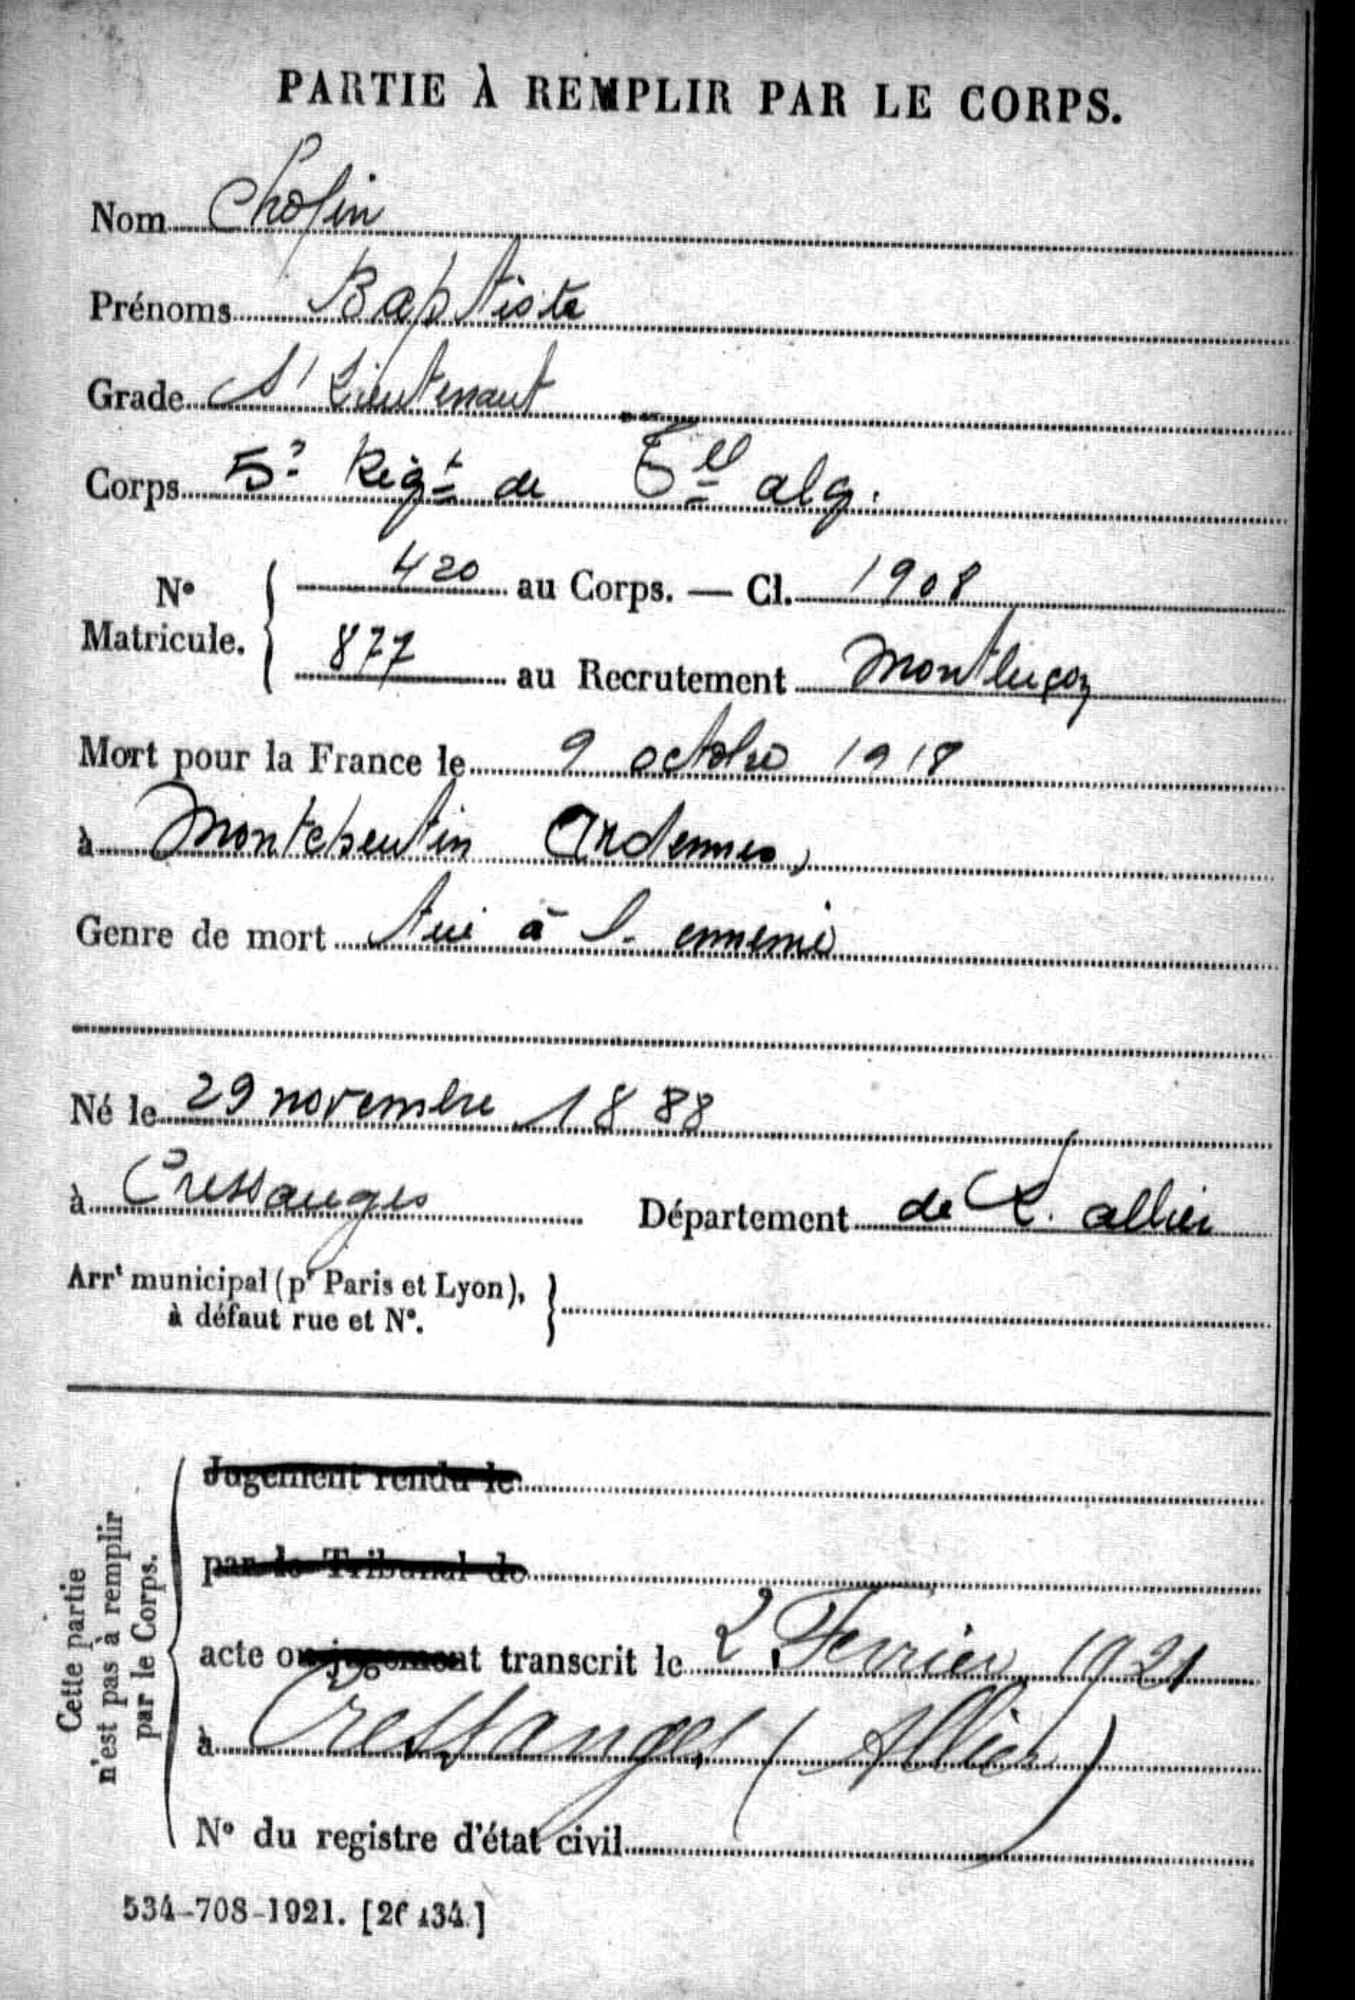 PARTIE À REMPLIR PAR LE CORPS.
Nom Chofin
Prénoms Baptiste
Grade S/ Lieutenant
Corps 5e Régt de Tell alg.
No Matricule. 420 au Corps. — Cl. 1908
877 au Recrutement Montluçon
Mort pour la France le 9 octobre 1918
à Montcheutin Ardennes,
Genre de mort tué à l'ennemi
Né le 29 novembre 1888
à Cressanges Département de L'allier
Arrt municipal (pr Paris et Lyon),
à défaut rue et No.
Cette partie
n'est pas à remplir
par le Corps.
Jugement rendu le
par le Tribunal de
acte ou jugement transcrit le 2 Fevrier 1921
à Cressanges (Allier)
No du registre d'état civil
534-708-1921.